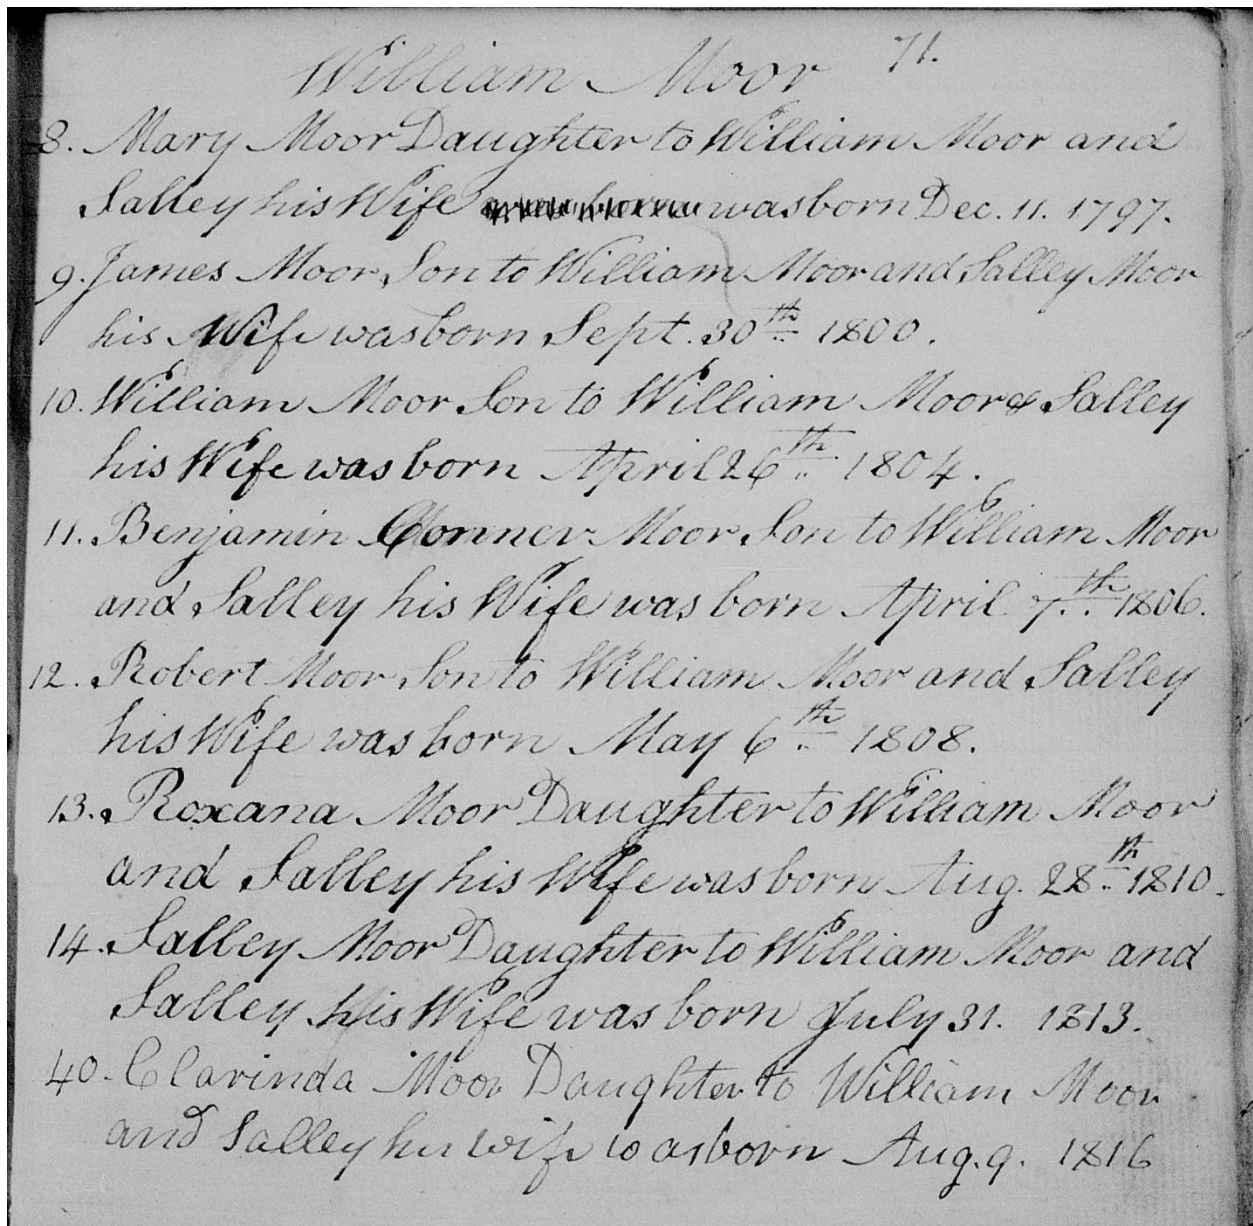 William Moor 71.
8. Mary Moor Daughter to William Moor and
Salley his Wife was born Dec. 11. 1797.
9. James Moor Son to William Moor and Salley Moor
his Wife was born Sept. 30th 1800.
10. William Moor Son to William Moor & Salley
his Wife was born April 26th 1804.
11. Benjamin Conner Moor Son to William Moor
and Salley his Wife was born April 7th 1806.
12. Robert Moor Son to William Moor and Salley
his Wife was born May 6th 1808.
13. Roxana Moor Daughter to William Moor
and Salley his Wife was born Aug. 28th 1810.
14. Salley Moor Daughter to William Moor and
Salley his Wife was born July 31. 1813.
40. Clarinda Moor Daughter to William Moor
and Salley his wife was born Aug. 9. 1816